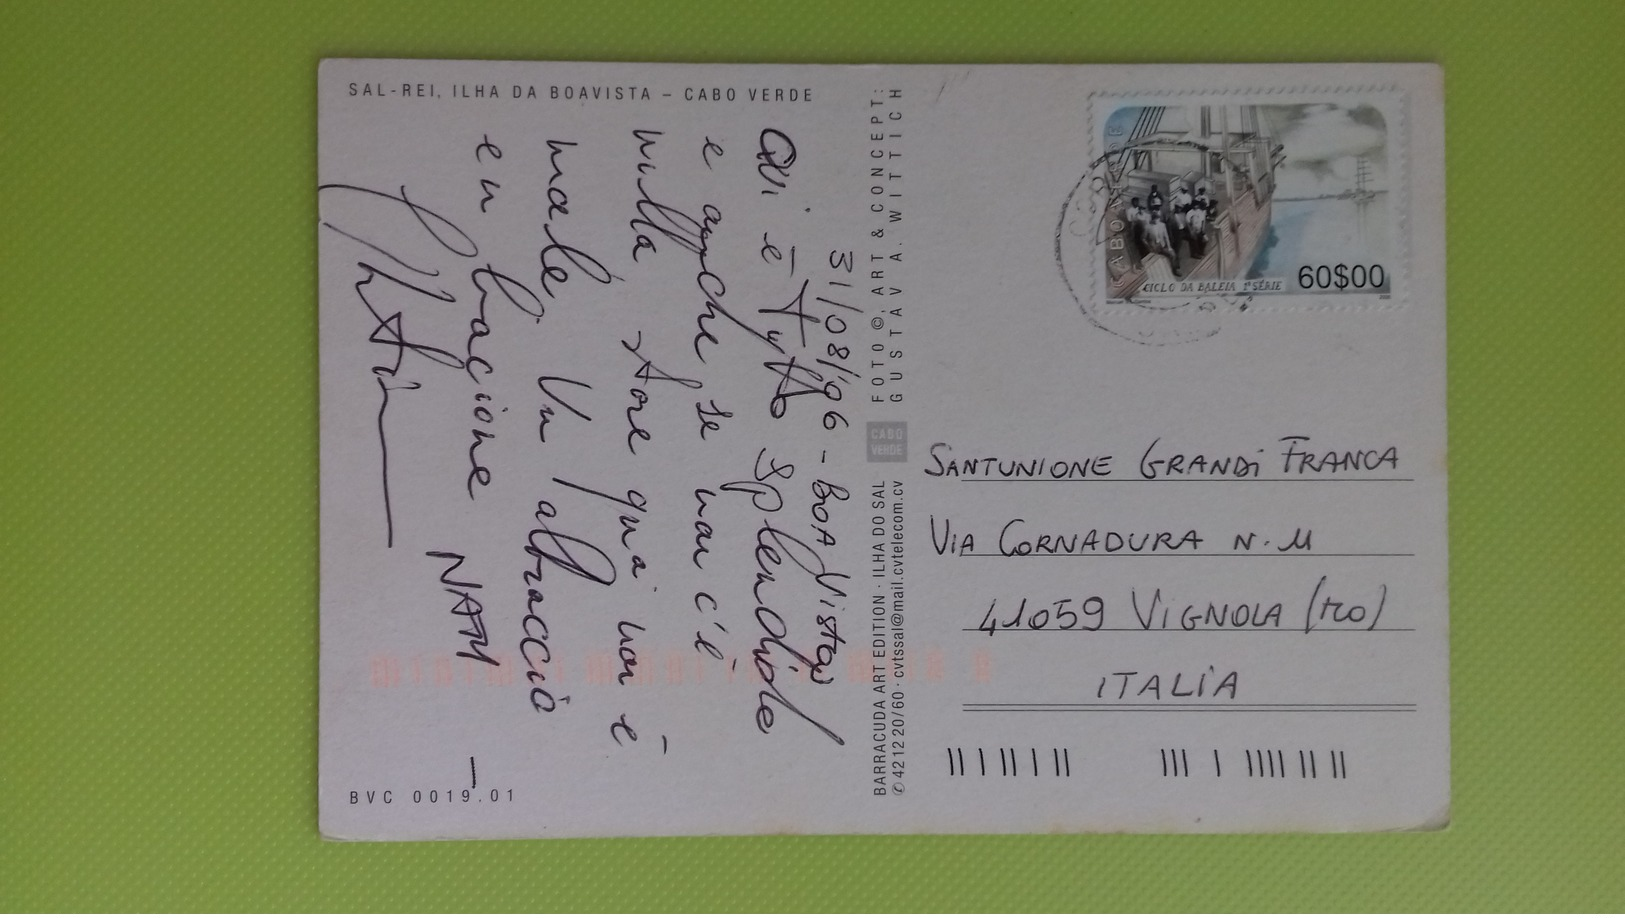 SAL-REI, ILHA DA BOAVISTA – CABO VERDE
31/08/06 - BOA Vista
Qui è tutto splendido
e anche se non c'è
nulla stare qua non è
male. Un abbraccio
e un bacione NATY
BVC 0019.01
FOTO ©, ART & CONCEPT:
GUSTAV A. WITTICH
CABO
VERDE
BARRACUDA ART EDITION · ILHA DO SAL
✆ 42 12 20/60 · cvtssal@mail.cvtelecom.cv
CABO VERDE
CICLO DA BALEIA 1ª SÉRIE
60$00
SANTUNIONE GRANDi FRANCA
VIA CORNADURA N. 11
41059 VIGNOLA (MO)
ITALIA